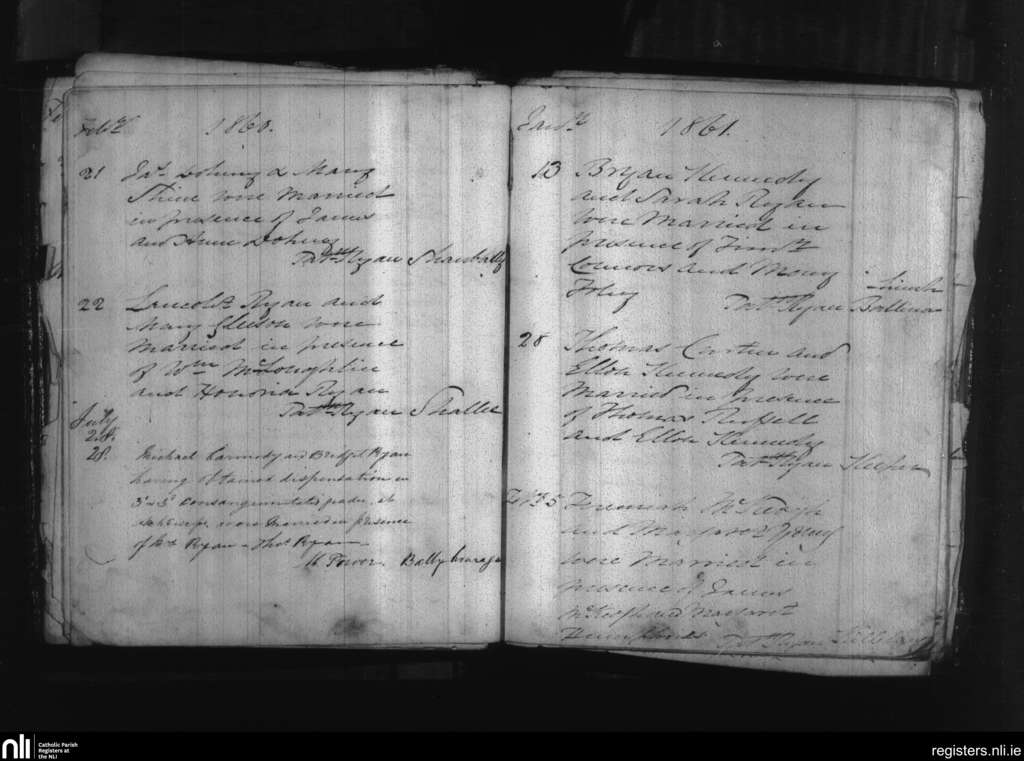 Feby 1860.
21 Jas. Doheny & Mary
Shine were Married
in presence of James
and Anne Doheny
Patk Ryan Shanbally
22 Ryan and
Mary Gleeson were
Married in presence
of Wm McLoughlin
and Honoria Ryan
Patk Ryan Shallee
July
28.
28. Michael Kennedy and Bridget Ryan
having obtained dispensation in
3 consanguinitatis gradu
were married in presence
of Ryan & Thos Ryan
M Power. Bally
Jany 1861.
13 Bryan Kennedy
and Sarah Ryan
were Married in
presence of Timthy
Connors and Mary
Foley
Patk Ryan Ballina
28 Thomas and
Ellen Kennedy were
Married in presence
of Thomas Russell
and Ellen Kennedy
Patk Ryan Killeen
Feb 5 Jeremiah McKeogh
and Margaret
were Married in
presence of James
McKeogh and Margaret
Patk Ryan
nli Catholic Parish
Registers at
the NLI
registers.nli.ie